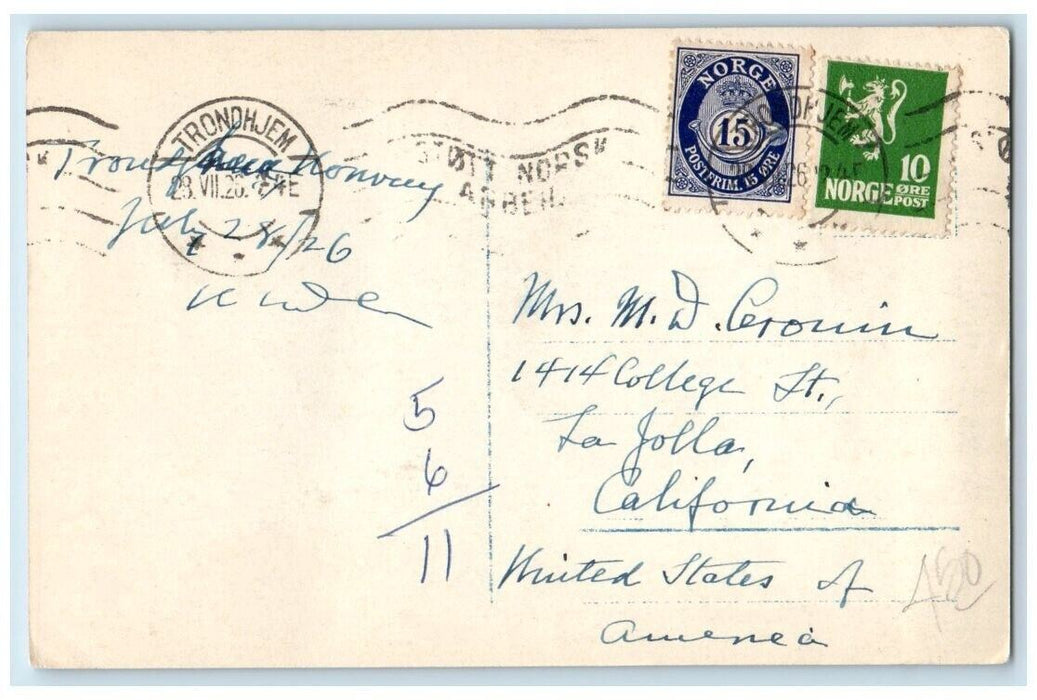 TRONDHJEM
28.VII.26.
STØTT NORSK
ARBEID
NORGE
15
POSTFRIM. 15 ØRE
10
NORGE ØRE
POST
TRONDHJEM
Norway
July 28/26
Mrs. M. D. Cronin
1414 College St.,
La Jolla,
California
United States of
America
5
6
11